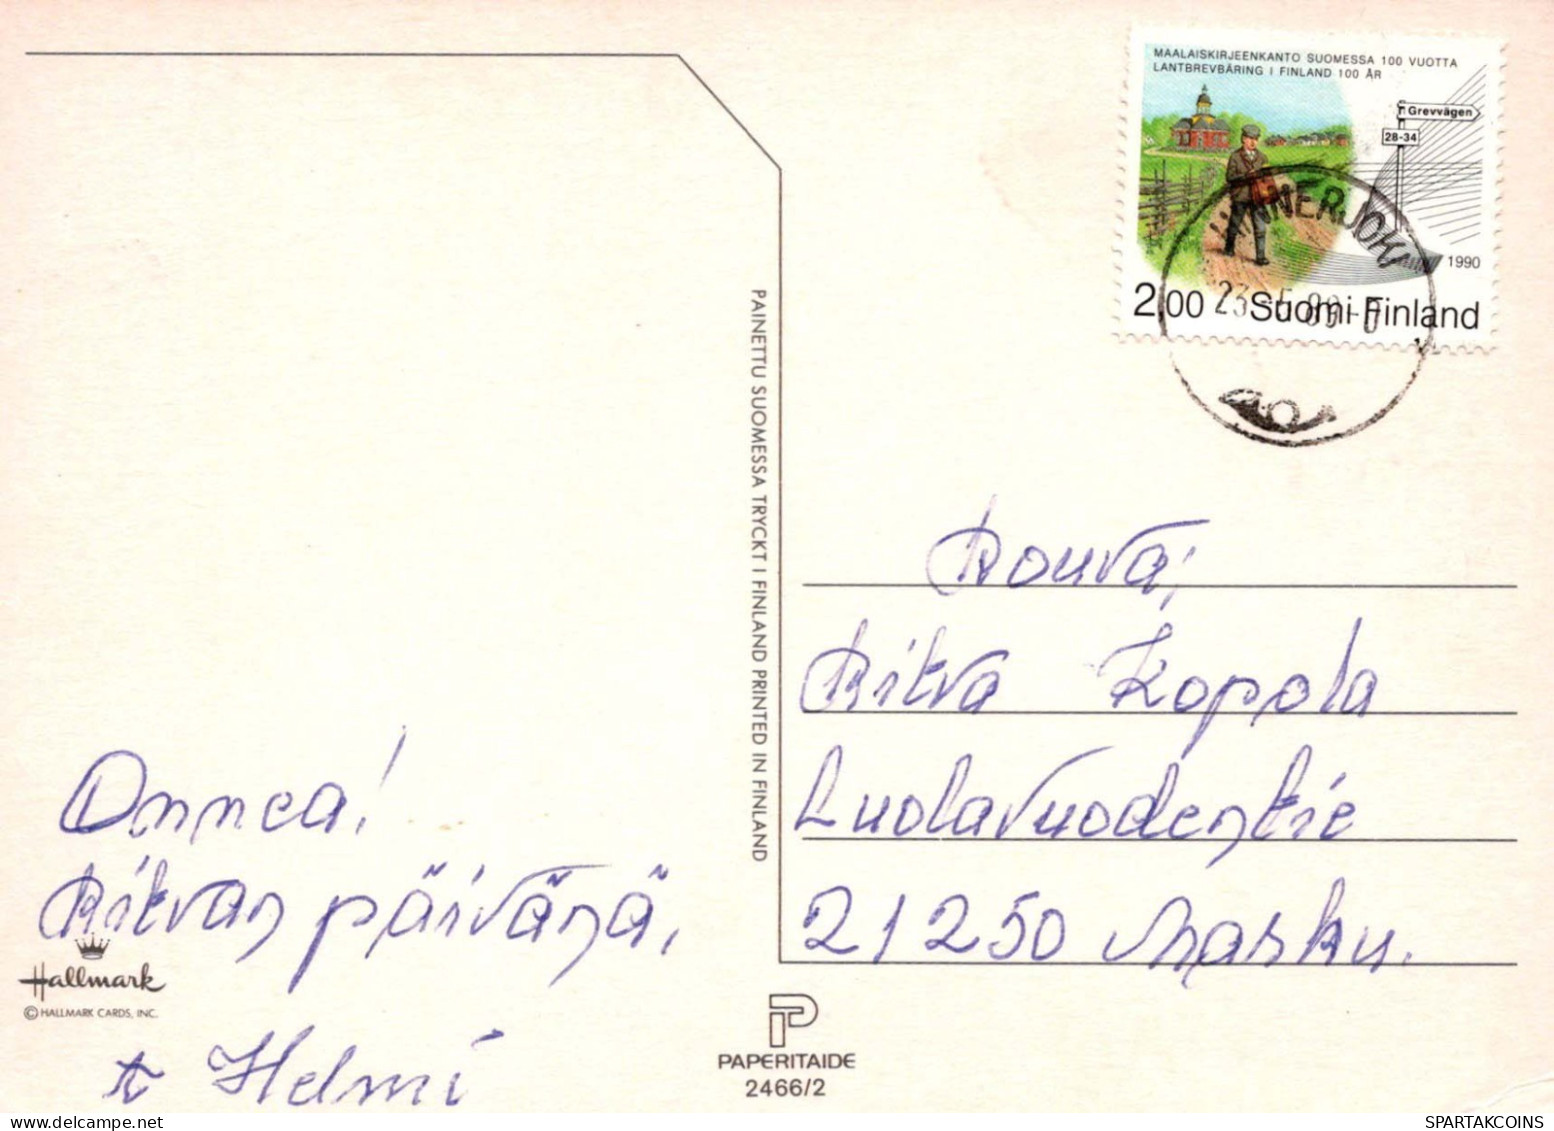 MAALAISKIRJEENKANTO SUOMESSA 100 VUOTTA
LANTBREVBÄRING I FINLAND 100 ÅR
Grevvägen
28-34
1990
2,00 Suomi Finland
PAINETTU SUOMESSA TRYCKT I FINLAND PRINTED IN FINLAND
Rouva,
Ritva Kopola
Luolavuodentie
21250 Masku.
Onnea!
Ritvan päivänä,
t Helmi
Hallmark
© HALLMARK CARDS, INC.
PAPERITAIDE
2466/2
SPARTAKCOINS